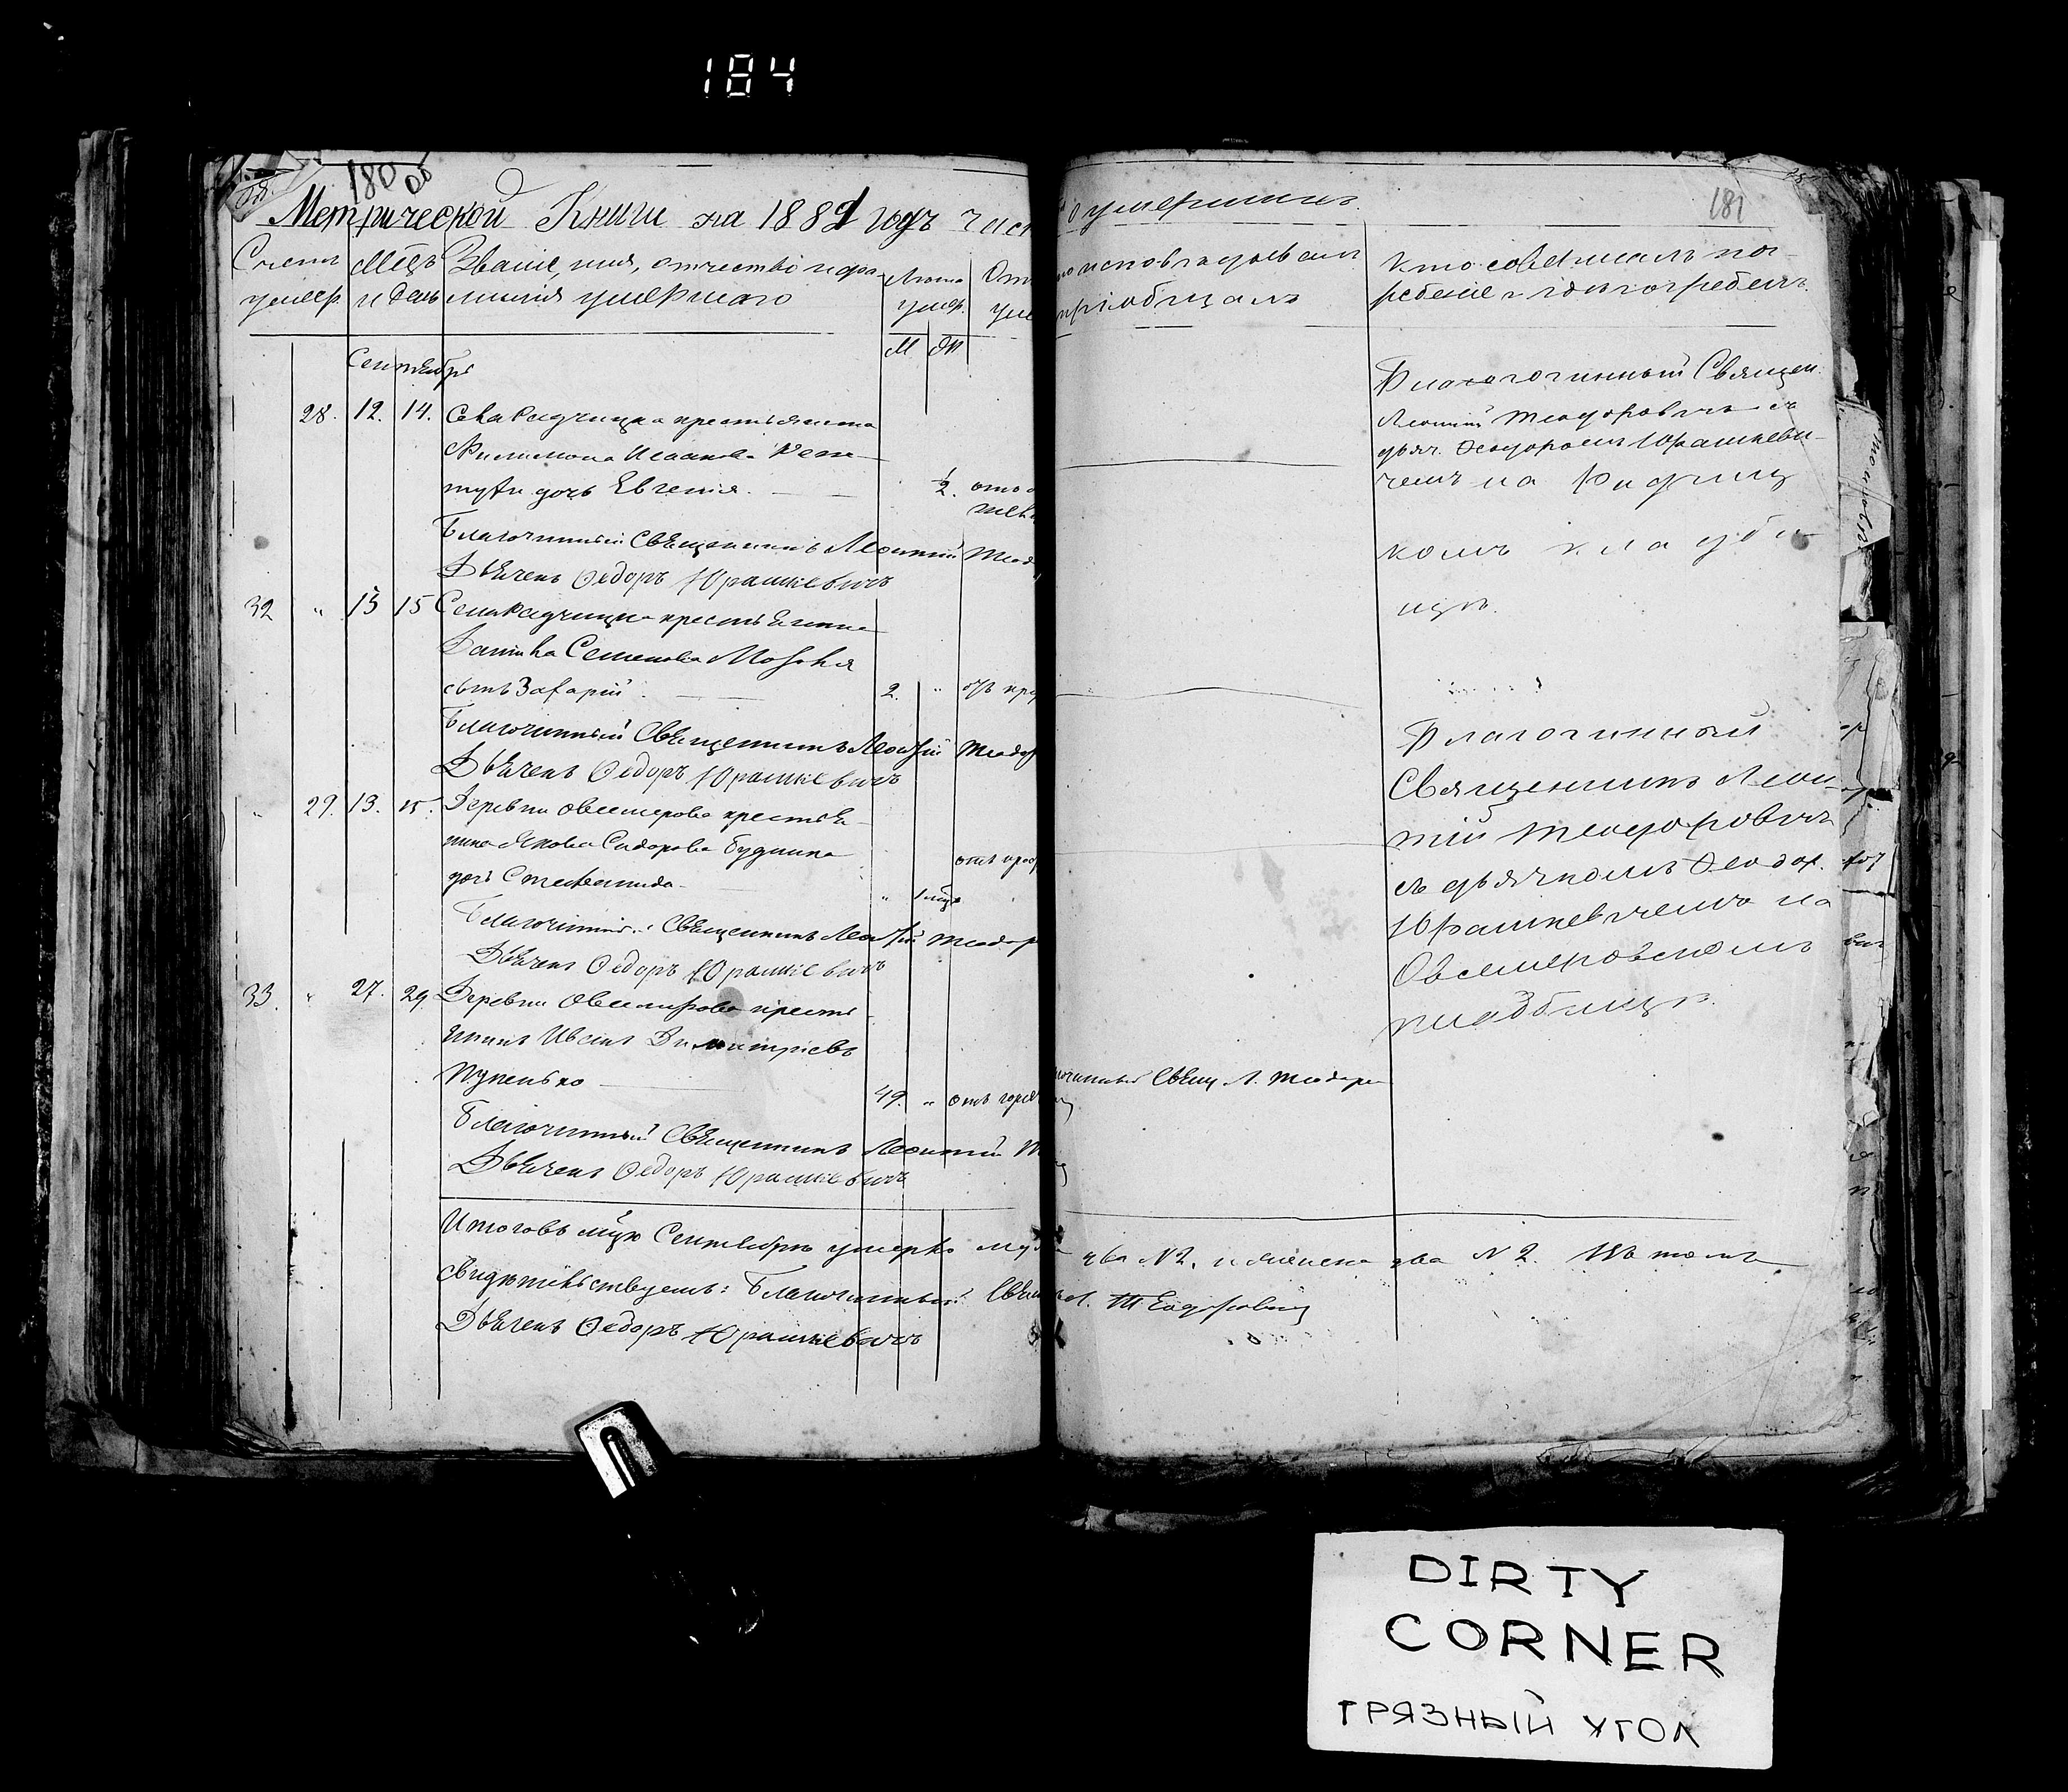 184
180 об
181
Метрической Книги на 1881 годъ част
о умершихъ.
Счетъ умер.
Мѣць и день
Званіе, имя, отчество и фамилія умершаго
Лѣта умер.
От
уме
исповѣдывалъ
пріобщалъ
Кто совершалъ погребеніе и гдѣ погребенъ.
М Ж
Сентябрь
28. 12. 14. Села Радчицка крестьянина
Филимона Исаакова
дочь Евгенія. 1/2. отъ
Благочинный Священникъ Леонтій Теод
Дьячекъ Ѳедоръ Юрашкевичъ
Благочинный Священ.
Леонтій Теодоровичъ съ
дьяч. Ѳеодоромъ Юрашкеви-
чемъ на Радчиц
комъ кладби
щѣ.
32 " 13 15 Села Радчицка крестьянина
Семенова Мозоля
сынъ Захарій 2. "
Благочинный Священникъ Леонтій Теодор
Дьячекъ Ѳедоръ Юрашкевичъ
" 29. 13. 15. Деревни Овсемерова крестья
нина Якова Сидорова Будника
дочь Степанида " 1 мѣц.
Благочинный Священникъ Леонтій Теодор
Дьячекъ Ѳедоръ Юрашкевичъ
Благочинный
Священникъ Леон-
тій Теодоровичъ
съ дьячкомъ Ѳеодор.
Юрашкевичемъ на
Овсемеровскомъ
кладбищѣ.
33. " 27. 29. Деревни Овсемирова кресть
янинъ Иванъ Димитріевъ
Пупенько 49. " отъ горяч
Благочинный Священникъ Леонтій Т
Дьячекъ Ѳедоръ Юрашкевичъ
Свящ Л. Теодоро
Итого въ мѣцѣ Сентябрѣ умерло муж два N 2. и женска два N 2. Въ томъ
свидѣтельствуемъ: Благочинный Свящ Л. Теодоровичъ
Дьячекъ Ѳедоръ Юрашкевичъ
DIRTY
CORNER
ГРЯЗНЫЙ УГОЛ